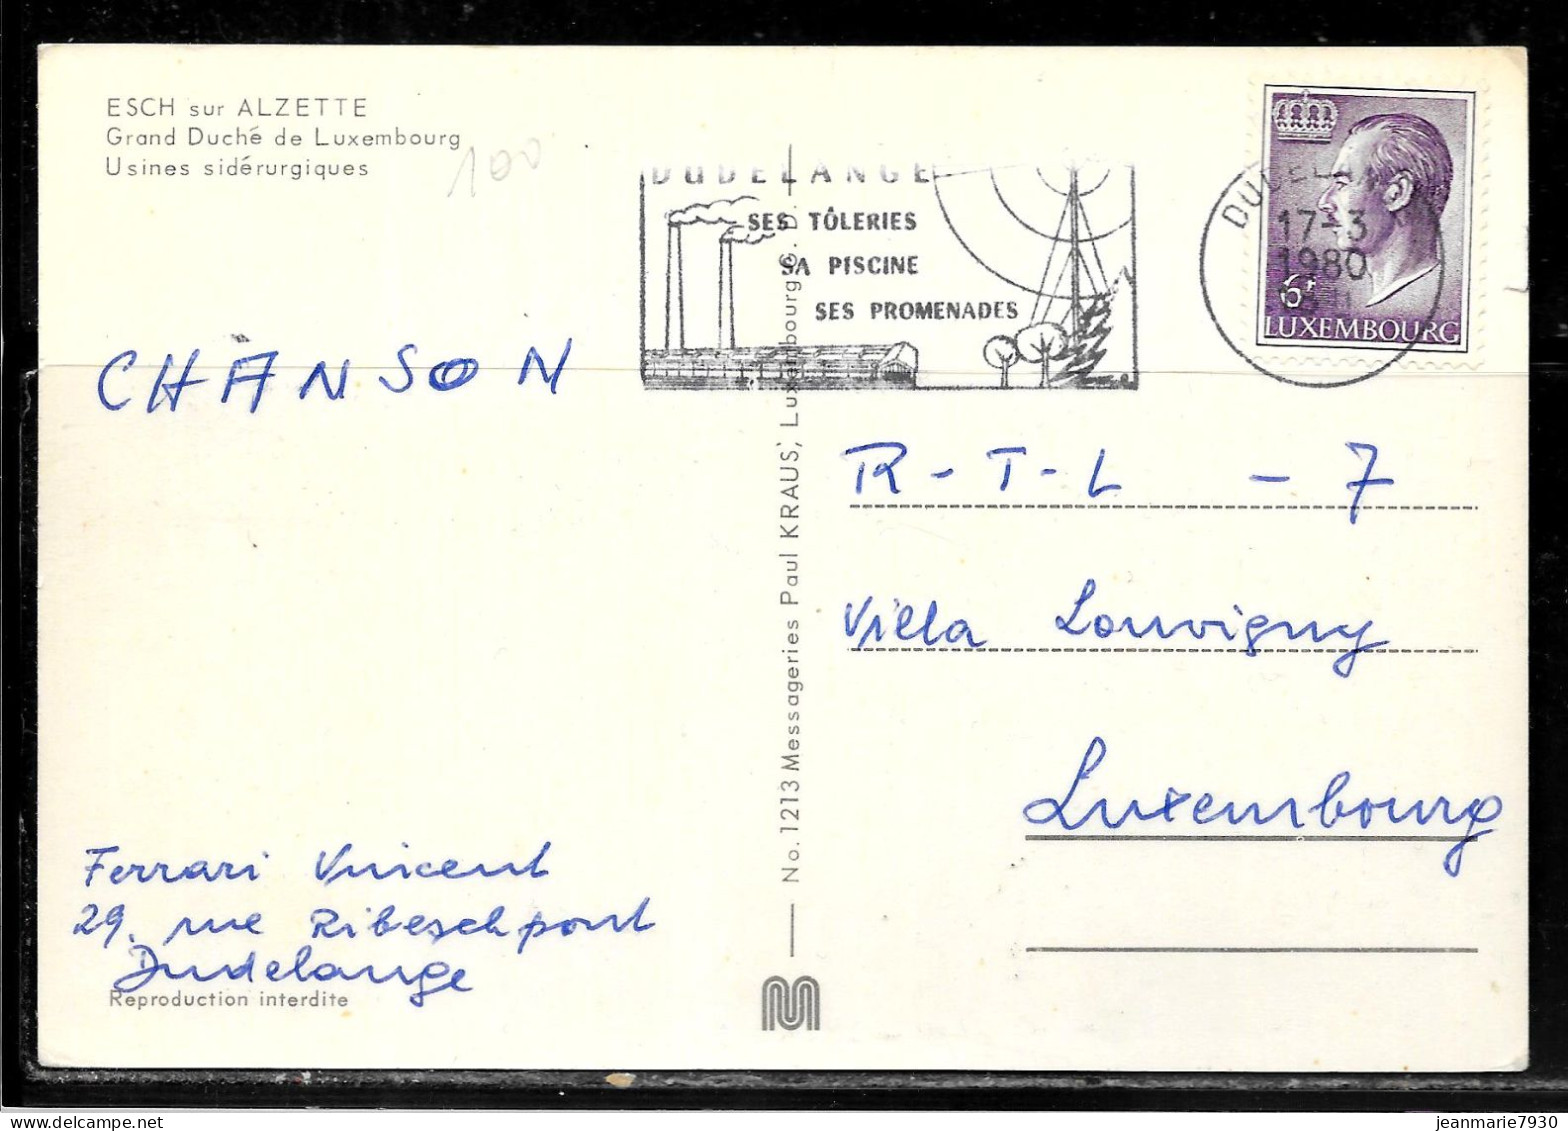 ESCH sur ALZETTE
Grand Duché de Luxembourg
Usines sidérurgiques
100
DUDELANGE
SES TÔLERIES
SA PISCINE
SES PROMENADES
17-3
1980
6F
LUXEMBOURG
CHANSON
R-T-L - 7
Villa Louvigny
Luxembourg
No. 1213 Messageries Paul KRAUS, Luxembourg G. D.
Ferrari Vincent
29, rue Ribeschpont
Dudelange
Reproduction interdite
jeanmarie7930